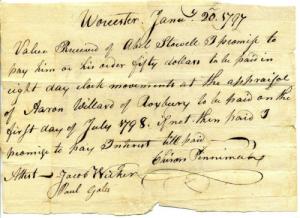 Worcester, Janu.y 20. 1797
Value Received of Abel Stowell I promise to
pay him or his order fifty dollars to be paid in
eight day clock movements at the appraisal
of Aaron Willard of Roxbury to be paid on the
first day of July 1798. if not then paid I
promise to pay Interest till paid
Penniman
Attest— Jacob
Paul Gates